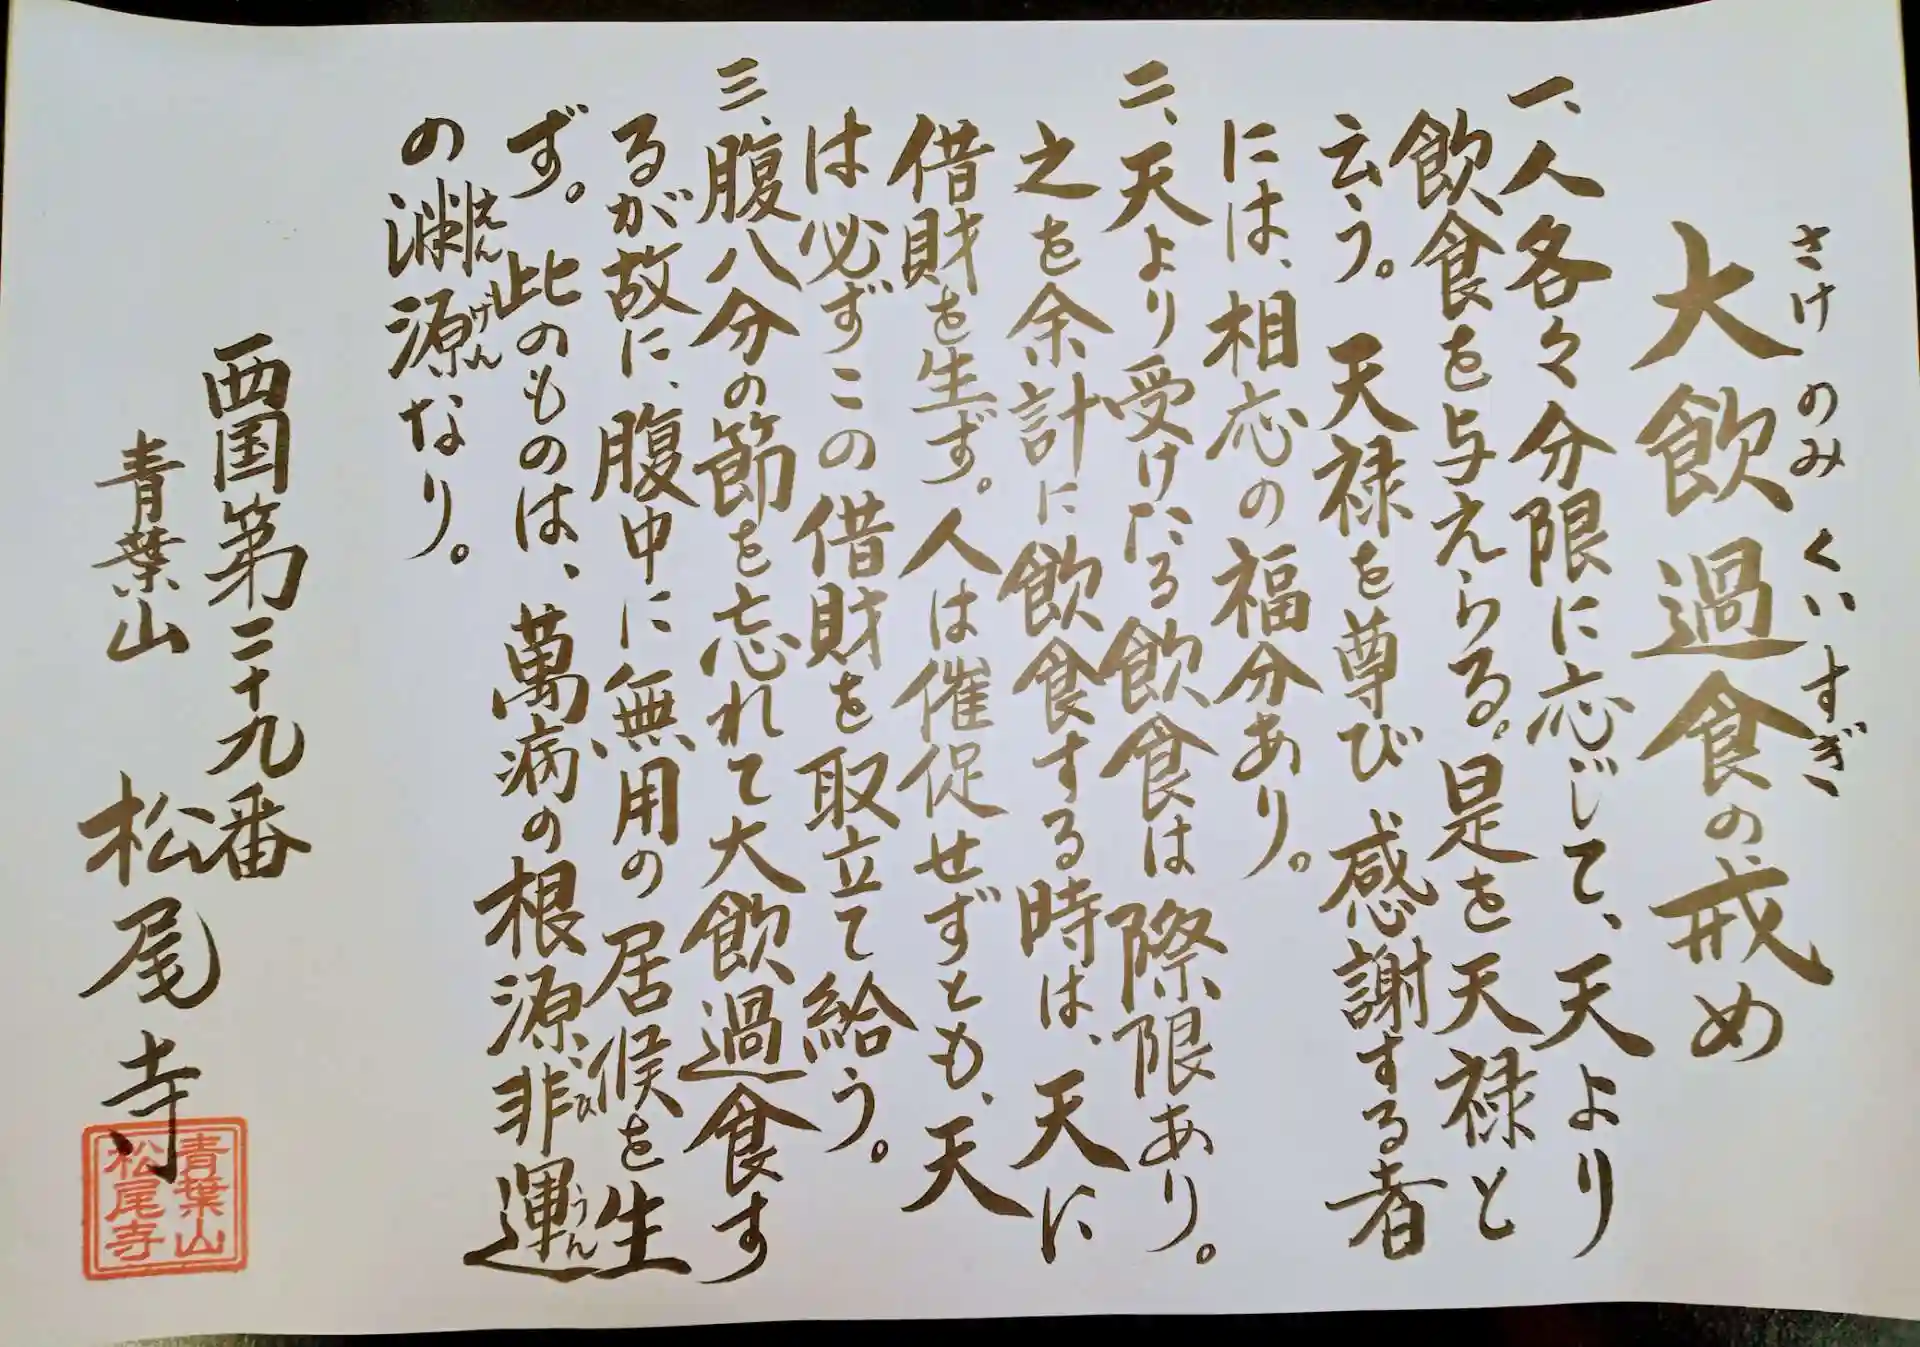 さけのみくいすぎ
大飲過食の戒め
一、人各々分限に応じて、天より
飲食を与えらる。是を天禄と
云う。天禄を尊び感謝する者
には、相応の福分あり。
二、天より受けたる飲食は際限あり。
之を余計に飲食する時は、天に
借財を生ず。人は催促せずとも、天
は必ずこの借財を取立て給う。
三、腹八分の節を忘れて大飲過食す
るが故に、腹中に無用の居候を生
ず。此のものは、萬病の根源非運
ひうん
の淵源なり。
えんげん
西国第二十九番
青葉山 松尾寺
青葉山
松尾寺